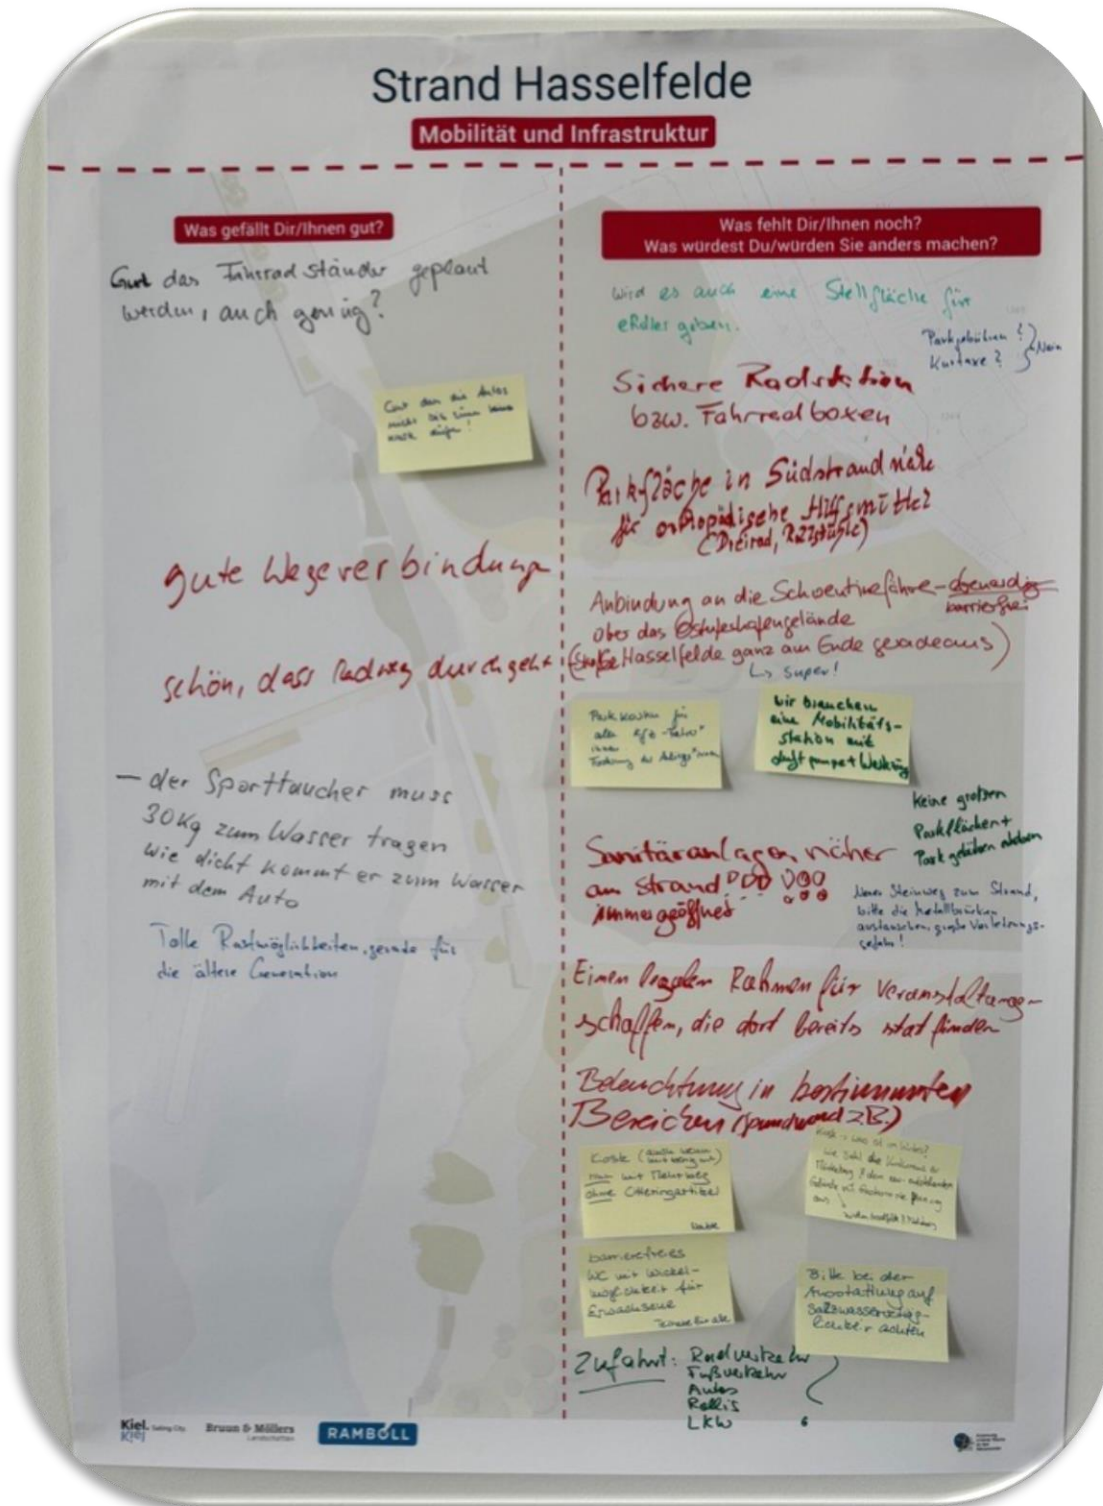 Strand Hasselfelde
Mobilität und Infrastruktur
Was gefällt Dir/Ihnen gut?
Gut das Fahrradständer geplant
werden, auch genug?
Gut dass die Autos
nicht bis
gute Wegeverbindung
schön, dass Radweg durchgeht
– der Sporttaucher muss
30Kg zum Wasser tragen
wie dicht kommt er zum Wasser
mit dem Auto
Tolle Rastmöglichkeiten, gerade für
die ältere Generation
Was fehlt Dir/Ihnen noch?
Was würdest Du/würden Sie anders machen?
wird es auch eine Stellfläche für
eRoller geben.
Parkgebühren?
Kurtaxe? } Nein
Sichere Radstation
bzw. Fahrradboxen
Parkfläche in Südstrand nähe
für orthopädische Hilfsmittel
(Dreirad, Rollstühle)
Anbindung an die Schwentinefähre – ebenerdig
barrierefrei
über das Ostuferhafengelände
(Straße Hasselfelde ganz am Ende geradeaus)
↳ super!
Parkkosten für
alle Kfz-Fahrer*
innen
wir brauchen
eine Mobilitäts-
station mit
Luftpumpe + Werkzeug
Keine großen
Parkflächen +
Parkgebühren
Sanitäranlagen näher
am Strand
immer geöffnet
Neuer Steinweg zum Strand,
bitte die Metallbrücken
austauschen, große Verletzungs-
gefahr!
Einen legalen Rahmen für Veranstaltungen
schaffen, die dort bereits stattfinden
Beleuchtung in bestimmten
Bereichen (Spundwand z.B.)
Kiosk (auch wenn
nur mit Mehrweg
ohne Einwegartikel
Danke
Kiosk → was ist im Winter?
barrierefreies
WC mit Wickel-
möglichkeit für
Erwachsene
Toilette für alle
Bitte bei der
Ausstattung auf
Salzwasserverträg-
lichkeit achten
Zufahrt: Radverkehr
Fußverkehr
Autos
Rollis
LKW
Kiel. Sailing City
Bruun & Möllers
Landschaften
RAMBOLL